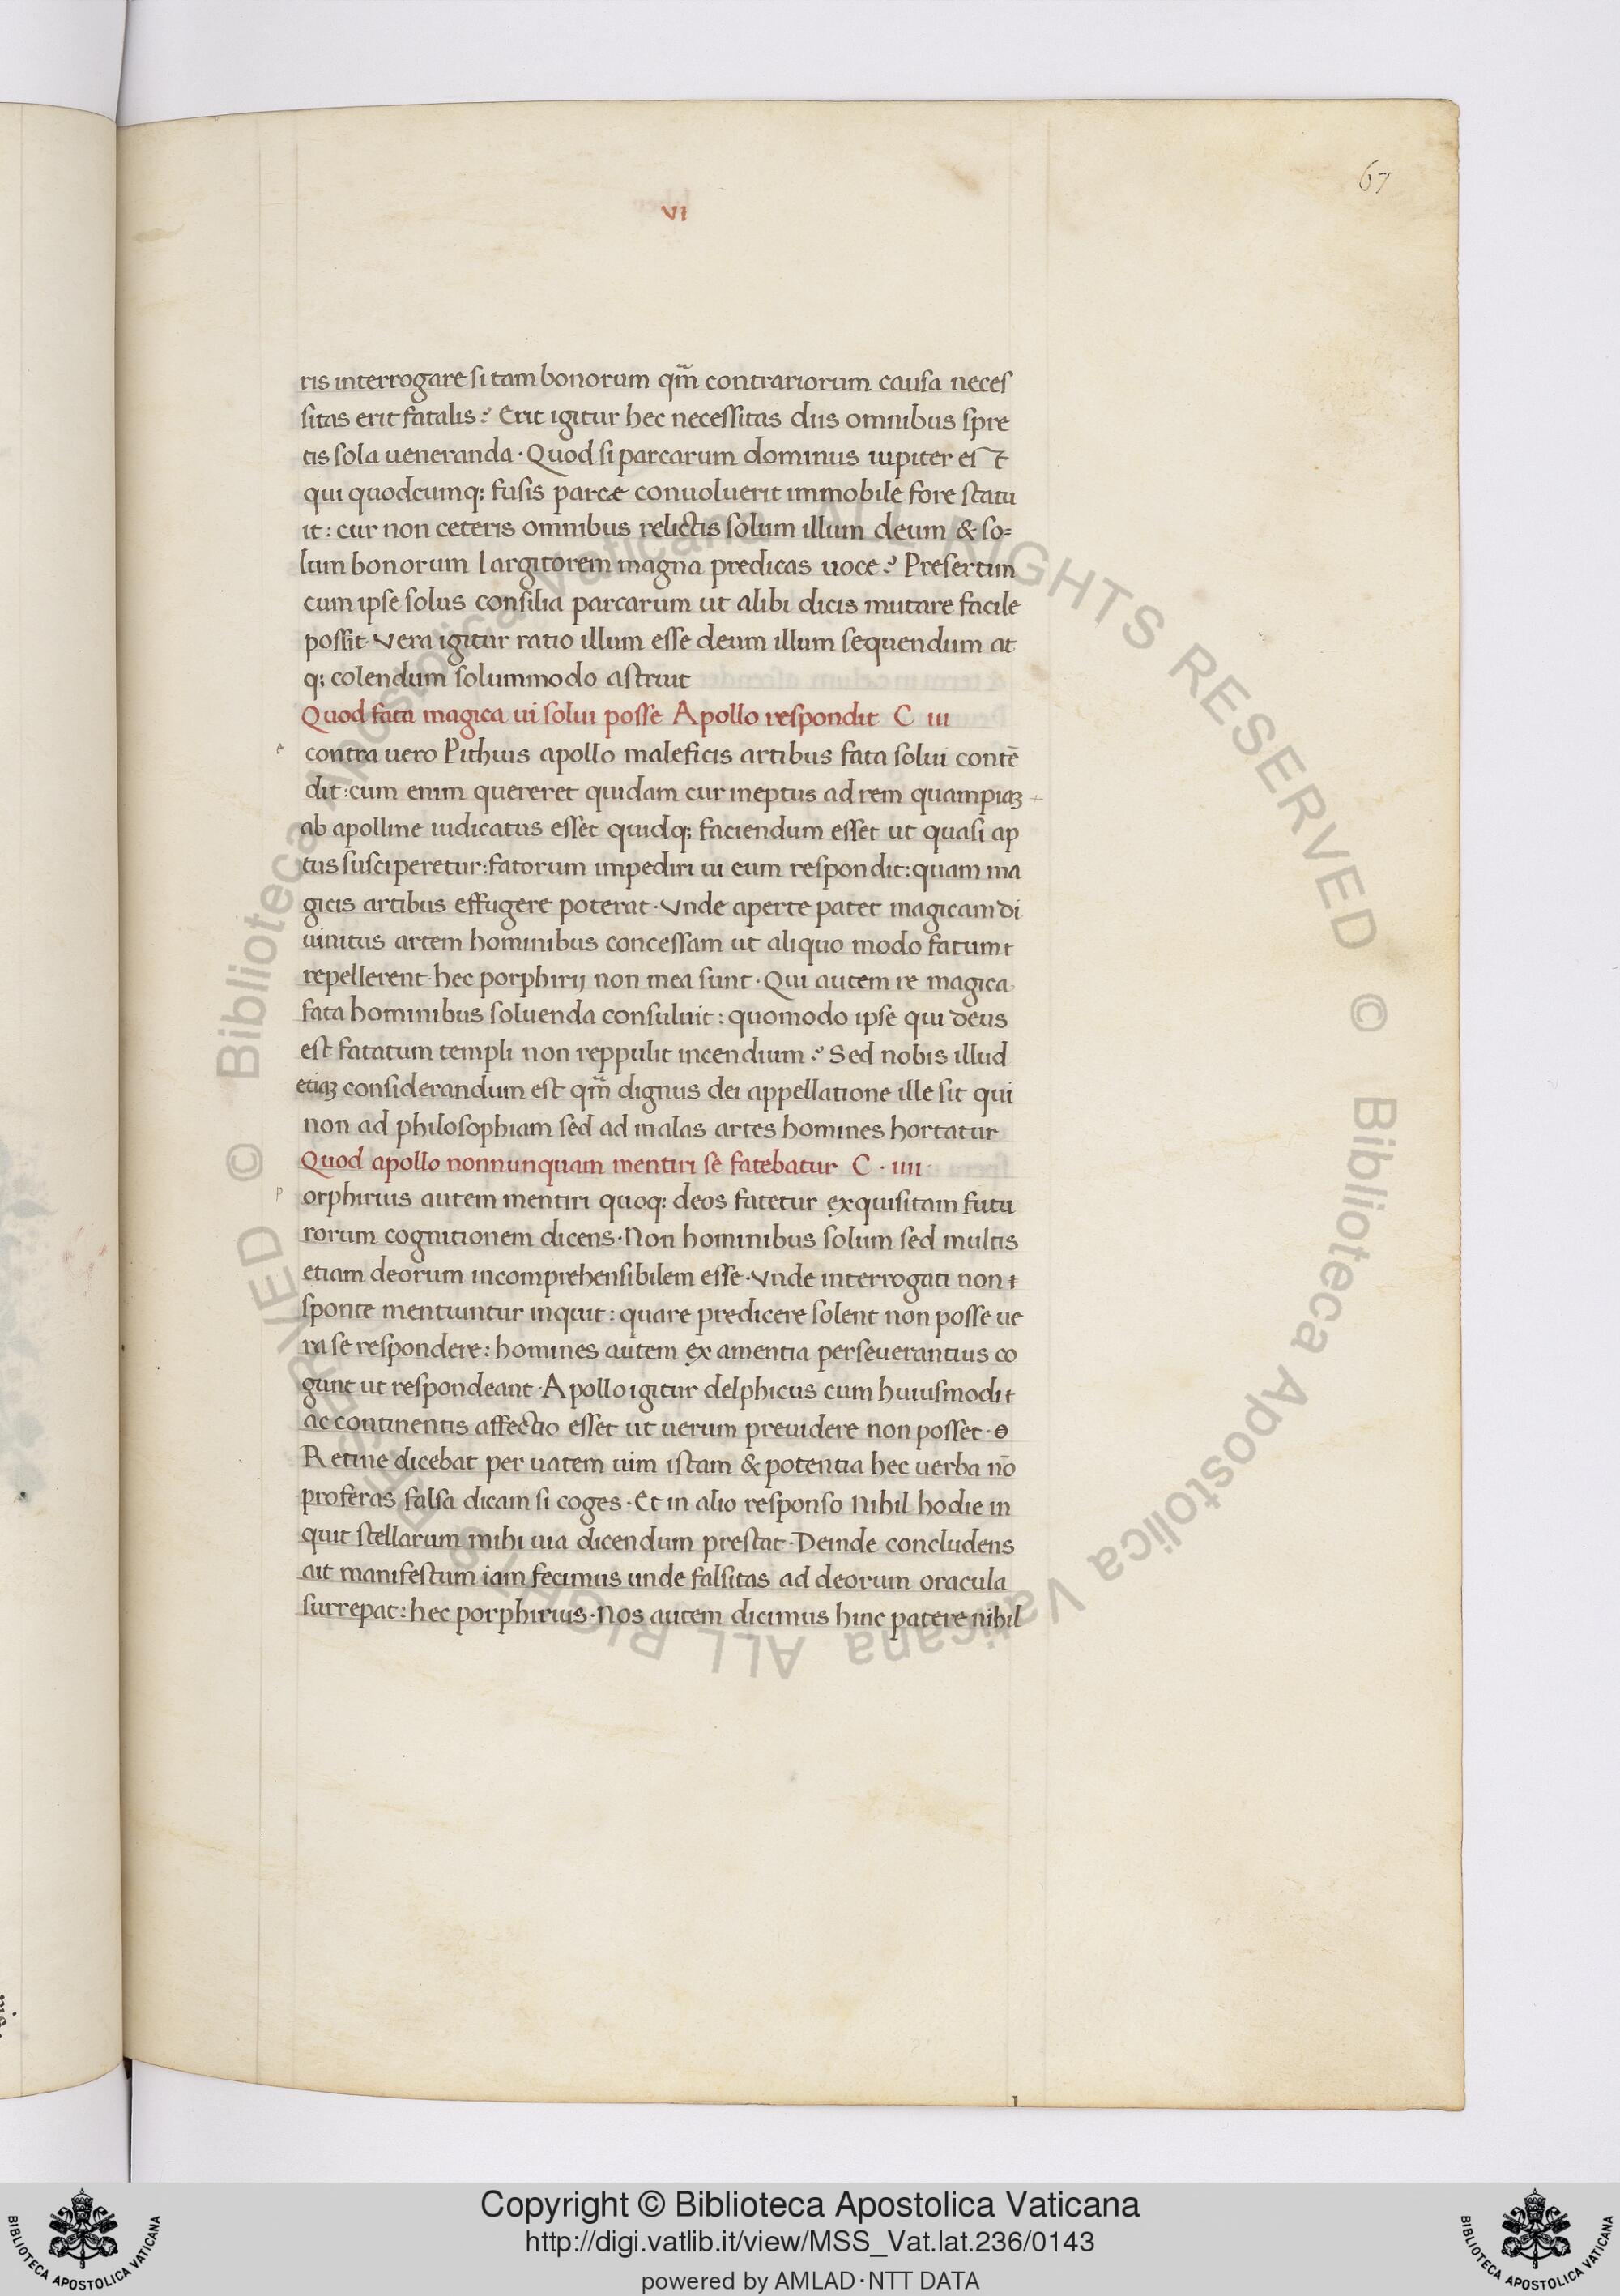 67
VI
ris interrogare si tam bonorum qm̃ contrariorum causa neces
sitas erit fatalis? Erit igitur hec necessitas diis omnibus spre
tis sola ueneranda · Quod si parcarum dominus iupiter est
qui quodcumq; fusis parcæ conuoluerit immobile fore statu
it : cur non ceteris omnibus relictis solum illum deum & so=
lum bonorum largitorem magna predicas uoce? Presertim
cum ipse solus consilia parcarum ut alibi dicis mutare facile
possit · Vera igitur ratio illum esse deum illum sequendum at
q; colendum solummodo astruit
Quod fata magica ui solui posse Apollo respondit C III
e contra uero Pithius apollo maleficis artibus fata solui contē
dit : cum enim quereret quidam cur ineptus ad rem quampiaꝫ
ab apolline iudicatus esset quidq; faciendum esset ut quasi ap
tus susciperetur : fatorum impediri ui eum respondit : quam ma
gicis artibus effugere poterat · Vnde aperte patet magicam di
uinitus artem hominibus concessam ut aliquo modo fatum
repellerent · hec porphirij non mea sunt · Qui autem re magica
fata hominibus soluenda consuluit : quomodo ipse qui deus
est fatatum templi non reppulit incendium? Sed nobis illud
etiaꝫ considerandum est qm̃ dignus dei appellatione ille sit qui
non ad philosophiam sed ad malas artes homines hortatur
Quod apollo nonnunquam mentiri se fatebatur C · IIII ·
p orphirius autem mentiri quoq; deos fatetur exquisitam futu
rorum cognitionem dicens · Non hominibus solum sed multis
etiam deorum incomprehensibilem esse · Vnde interrogati non
sponte mentiuntur inquit : quare predicere solent non posse ue
ra se respondere : homines autem ex amentia perseuerantius co
gunt ut respondeant · Apollo igitur delphicus cum huiusmodi
ac continentis affectio esset ut uerum preuidere non posset ·
Retine dicebat per uatem uim istam & potentia hec uerba nō
proferas falsa dicam si coges · Et in alio responso Nihil hodie in
quit stellarum mihi uia dicendum prestat · Deinde concludens
ait manifestum iam fecimus unde falsitas ad deorum oracula
surrepat : hec porphirius · Nos autem dicimus hinc patere nihil
© Biblioteca Apostolica Vaticana ALL RIGHTS RESERVED © Biblioteca Apostolica Vaticana ALL RIGHTS RESERVED
Copyright © Biblioteca Apostolica Vaticana
http://digi.vatlib.it/view/MSS_Vat.lat.236/0143
powered by AMLAD·NTT DATA
BIBLIOTECA APOSTOLICA VATICANA
BIBLIOTECA APOSTOLICA VATICANA